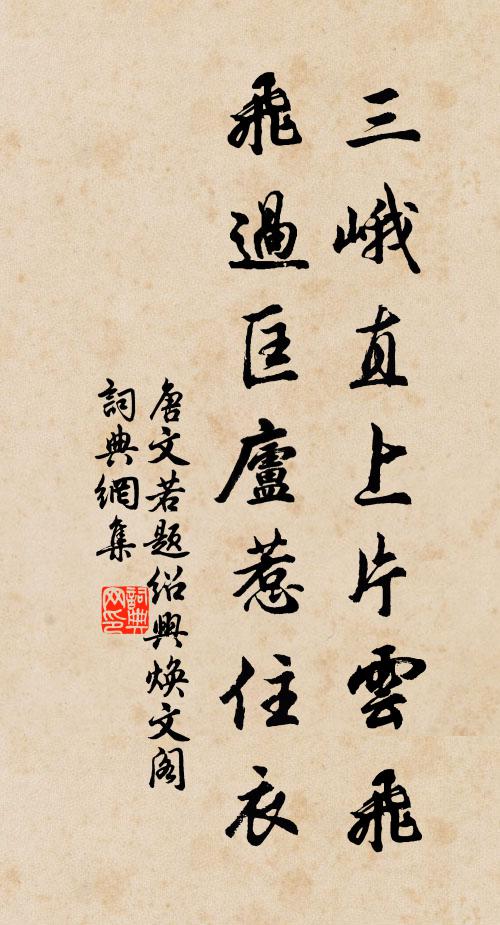 三峨直上片雲飛
飛過匡廬惹住衣
唐文若題紹興煥文阁
詞典網集
詞典网印